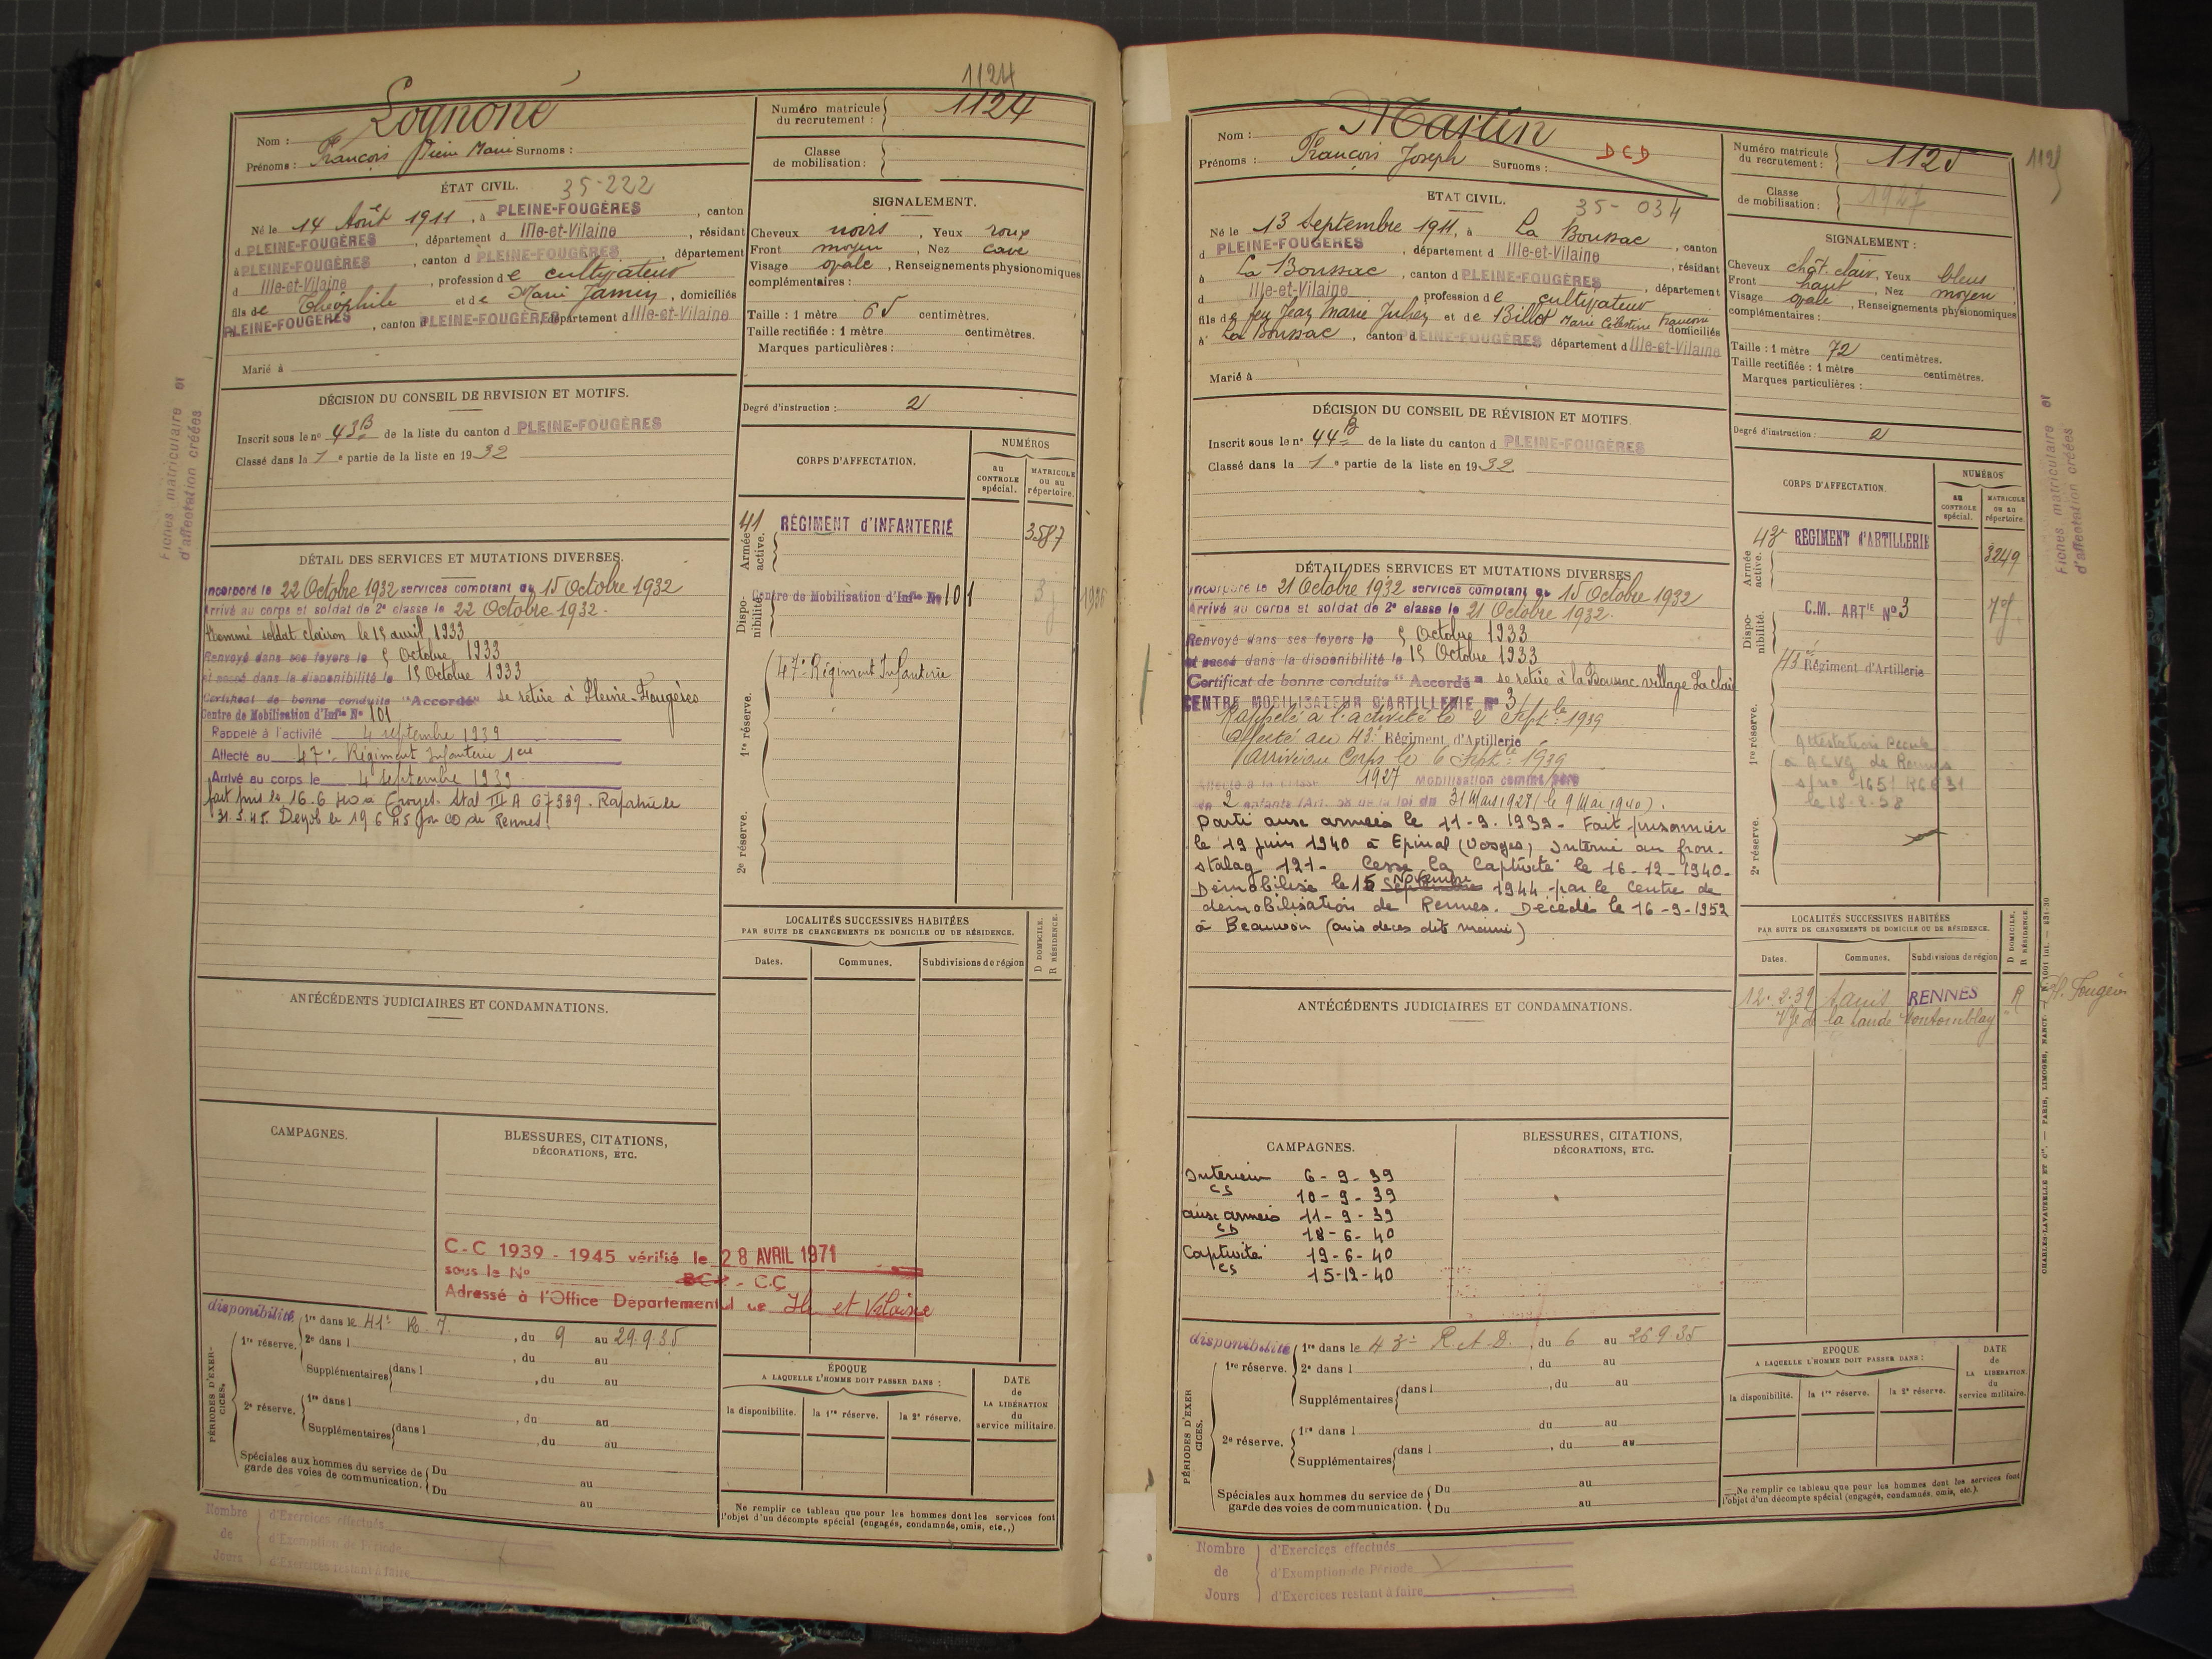 1124
Nom : Lognoné
Prénoms : François Pierre Marie Surnoms :
Numéro matricule du recrutement : 1124
Classe de mobilisation :
ÉTAT CIVIL. 35-222
Né le 14 Août 1911, à PLEINE-FOUGÈRES, canton
d PLEINE-FOUGÈRES, département d Ille-et-Vilaine, résidant
à PLEINE-FOUGÈRES, canton d PLEINE-FOUGÈRES, département
d Ille-et-Vilaine, profession de cultivateur
fils de Théophile et de Marie Jamin, domiciliés
PLEINE-FOUGÈRES, canton d PLEINE-FOUGÈRES, département d Ille-et-Vilaine
Marié à
SIGNALEMENT.
Cheveux noirs, Yeux roux
Front moyen, Nez cave
Visage ovale, Renseignements physionomiques
complémentaires :
Taille : 1 mètre 65 centimètres.
Taille rectifiée : 1 mètre centimètres.
Marques particulières :
Degré d'instruction : 2
DÉCISION DU CONSEIL DE REVISION ET MOTIFS.
Inscrit sous le n° 43 B de la liste du canton d PLEINE-FOUGÈRES
Classé dans la 1e partie de la liste en 1932
Fiches matriculaire et
d'affectation créées
CORPS D'AFFECTATION.
NUMÉROS
au CONTROLE spécial.
MATRICULE ou au répertoire.
Armée active.
41 RÉGIMENT d'INFANTERIE 3587
Disponibilité.
Centre de Mobilisation d'Infie No 101
1re réserve.
47e Régiment Infanterie
2e réserve.
DÉTAIL DES SERVICES ET MUTATIONS DIVERSES.
Incorporé le 22 Octobre 1932 services comptant du 15 Octobre 1932
Arrivé au corps et soldat de 2e classe le 22 Octobre 1932.
Nommé soldat clairon le 15 avril 1933
Renvoyé dans ses foyers le 5 Octobre 1933
et passé dans la disponibilité le 15 Octobre 1933
Certificat de bonne conduite "Accordé" se retire à Pleine-Fougères
Centre de Mobilisation d'Infie No 101
Rappelé à l'activité 4 septembre 1939
Affecté au 47e Régiment Infanterie 1ere
Arrivé au corps le 4 septembre 1939
fait pris le 16.6.40 à Troyes. Stal III A 67339. Rapatrié le
31.5.45. Demob le 19 6 45 par CD de Rennes.
LOCALITÉS SUCCESSIVES HABITÉES
PAR SUITE DE CHANGEMENTS DE DOMICILE OU DE RÉSIDENCE.
Dates.
Communes.
Subdivisions de région
D DOMICILE.
R RÉSIDENCE.
ANTÉCÉDENTS JUDICIAIRES ET CONDAMNATIONS.
CAMPAGNES.
BLESSURES, CITATIONS,
DÉCORATIONS, ETC.
C-C 1939 - 1945 vérifié le 28 AVRIL 1971
sous le N° - C.C.
Adressé à l'Office Départemental de Ille et Vilaine
PÉRIODES D'EXERCICES.
disponibilité 1re dans le 41e R. I., du 9 au 29.9.35
1re réserve. 2e dans l , du au
Supplémentaires dans l , du au
2e réserve. 1re dans l , du au
Supplémentaires dans l , du au
Spéciales aux hommes du service de Du au
garde des voies de communication. Du au
ÉPOQUE
A LAQUELLE L'HOMME DOIT PASSER DANS :
la disponibilité.
la 1re réserve.
la 2e réserve.
DATE de LA LIBÉRATION du service militaire.
Ne remplir ce tableau que pour les hommes dont les services font
l'objet d'un décompte spécial (engagés, condamnés, omis, etc.,)
Nombre de Jours
d'Exercices effectués
d'Exemption de Période
d'Exercices restant à faire
Nom : Martin
Prénoms : François Joseph Surnoms :
DCD
Numéro matricule du recrutement : 1125
1125
Classe de mobilisation : 1927
ETAT CIVIL. 35-034
Né le 13 Septembre 1911, à La Boussac, canton
d PLEINE-FOUGÈRES, département d Ille-et-Vilaine, résidant
à La Boussac, canton d PLEINE-FOUGÈRES, département
d Ille-et-Vilaine, profession de cultivateur
fils de feu Jean Marie Julien et de Billot Marie Célestine Françoise domiciliés
à La Boussac, canton d PLEINE-FOUGÈRES département d Ille-et-Vilaine
Marié à
SIGNALEMENT :
Cheveux chât. clair, Yeux bleus
Front haut, Nez moyen
Visage ovale, Renseignements physionomiques
complémentaires :
Taille : 1 mètre 72 centimètres.
Taille rectifiée : 1 mètre centimètres.
Marques particulières :
Degré d'instruction : 2
DÉCISION DU CONSEIL DE RÉVISION ET MOTIFS
Inscrit sous le n° 44 B de la liste du canton d PLEINE-FOUGÈRES
Classé dans la 1e partie de la liste en 1932
Fiches matriculaire et
d'affectation créées
CORPS D'AFFECTATION.
NUMÉROS
au CONTROLE spécial.
MATRICULE ou au répertoire.
Armée active.
43 RÉGIMENT d'ARTILLERIE 3249
Disponibilité.
C.M. ARTIE N° 3
1re réserve.
43e Régiment d'Artillerie
Attestation Pécule
à ACVG de Rennes
s/no 1651 R6031
le 18-2-58
2e réserve.
DÉTAIL DES SERVICES ET MUTATIONS DIVERSES
Incorporé le 21 Octobre 1932 services comptant du 15 Octobre 1932
Arrivé au corps et soldat de 2e classe le 21 Octobre 1932.
Renvoyé dans ses foyers le 5 Octobre 1933
et passé dans la disponibilité le 15 Octobre 1933
Certificat de bonne conduite "Accordé" se retire à la Boussac village La claie
CENTRE MOBILISATEUR D'ARTILLERIE N° 3
Rappelé à l'activité le 2 Septbre 1939
Affecté au 43e Régiment d'Artillerie
Arrivé au Corps le 6 Septbre 1939
Affecté à la classe 1927 Mobilisation comme père
de 2 enfants (Art. 58 de la loi du 31 Mars 1928 (le 9 Mai 1940).
Parti aux armées le 11-9-1939 - Fait prisonnier
le 19 juin 1940 à Epinal (Vosges) Interné au fron-
stalag 121 - Cesse la Captivité le 16-12-1940-
Démobilisé le 15 Septembre Novembre 1944 par le Centre de
démobilisation de Rennes. Décédé le 16-9-1952
à Beauvoir (avis décès dét muni)
LOCALITÉS SUCCESSIVES HABITÉES
PAR SUITE DE CHANGEMENTS DE DOMICILE OU DE RÉSIDENCE.
Dates.
Communes.
Subdivisions de région
D DOMICILE.
R RÉSIDENCE.
12.2.39 Tanis RENNES R
Vge de la Lande
ANTÉCÉDENTS JUDICIAIRES ET CONDAMNATIONS.
CAMPAGNES.
Intérieur 6-9-39
CS 10-9-39
aux armées 11-9-39
CD 18-6-40
Captivité 19-6-40
CS 15-12-40
BLESSURES, CITATIONS,
DÉCORATIONS, ETC.
PÉRIODES D'EXERCICES.
disponibilité 1re dans le 43e R.A.D., du 6 au 26 9 35
1re réserve. 2e dans l , du au
Supplémentaires dans l , du au
2e réserve. 1re dans l du au
Supplémentaires dans l , du au
Spéciales aux hommes du service de Du au
garde des voies de communication. Du au
EPOQUE
A LAQUELLE L'HOMME DOIT PASSER DANS :
la disponibilité.
la 1re réserve.
la 2e réserve.
DATE de LA LIBÉRATION du service militaire.
Ne remplir ce tableau que pour les hommes dont les services font
l'objet d'un décompte spécial (engagés, condamnés, omis, etc.).
Nombre de Jours
d'Exercices effectués
d'Exemption de Période
d'Exercices restant à faire
CHARLES-LAVAUZELLE ET Cie. — PARIS, LIMOGES, NANCY.